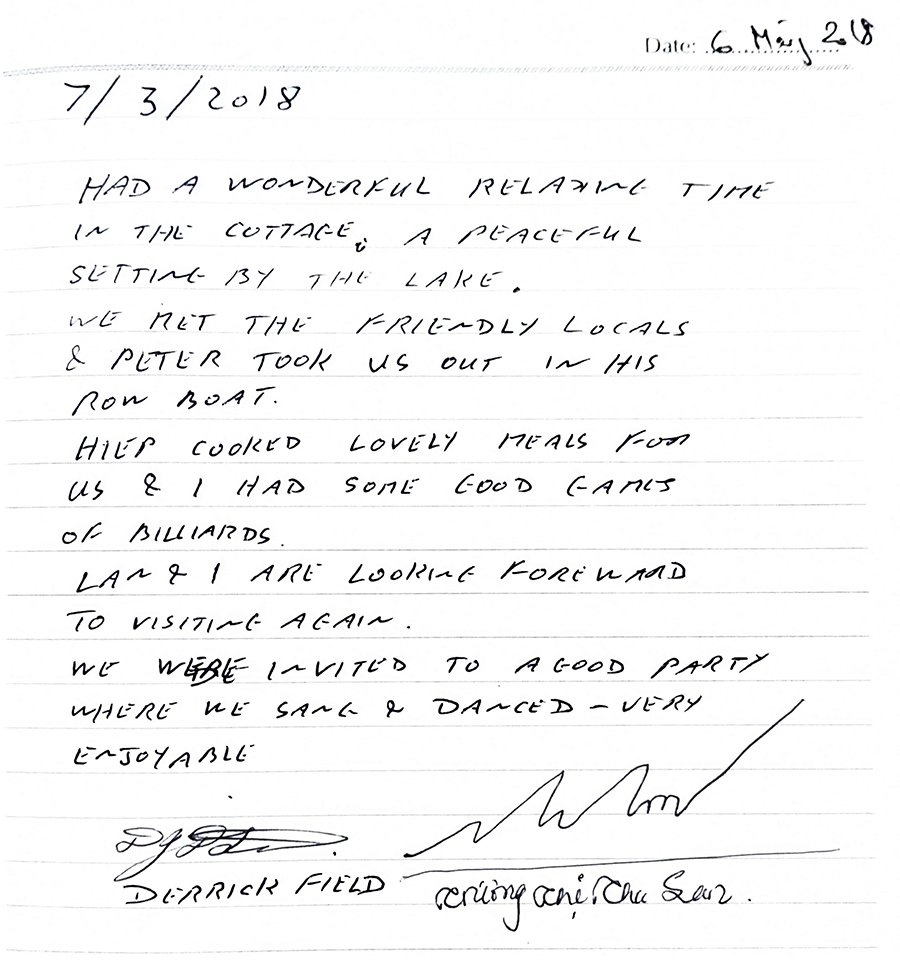 Date: 6 März 2018
7/3/2018
HAD A WONDERFUL RELAXING TIME
IN THE COTTAGE; A PEACEFUL
SETTING BY THE LAKE.
WE MET THE FRIENDLY LOCALS
& PETER TOOK US OUT IN HIS
ROW BOAT.
HIEP COOKED LOVELY MEALS FOR
US & I HAD SOME GOOD GAMES
OF BILLIARDS.
LAN & I ARE LOOKING FOREWARD
TO VISITING AGAIN.
WE WERE INVITED TO A GOOD PARTY
WHERE WE SANG & DANCED – VERY
ENJOYABLE
DERRICK FIELD
Trương Thị Thu Lan.